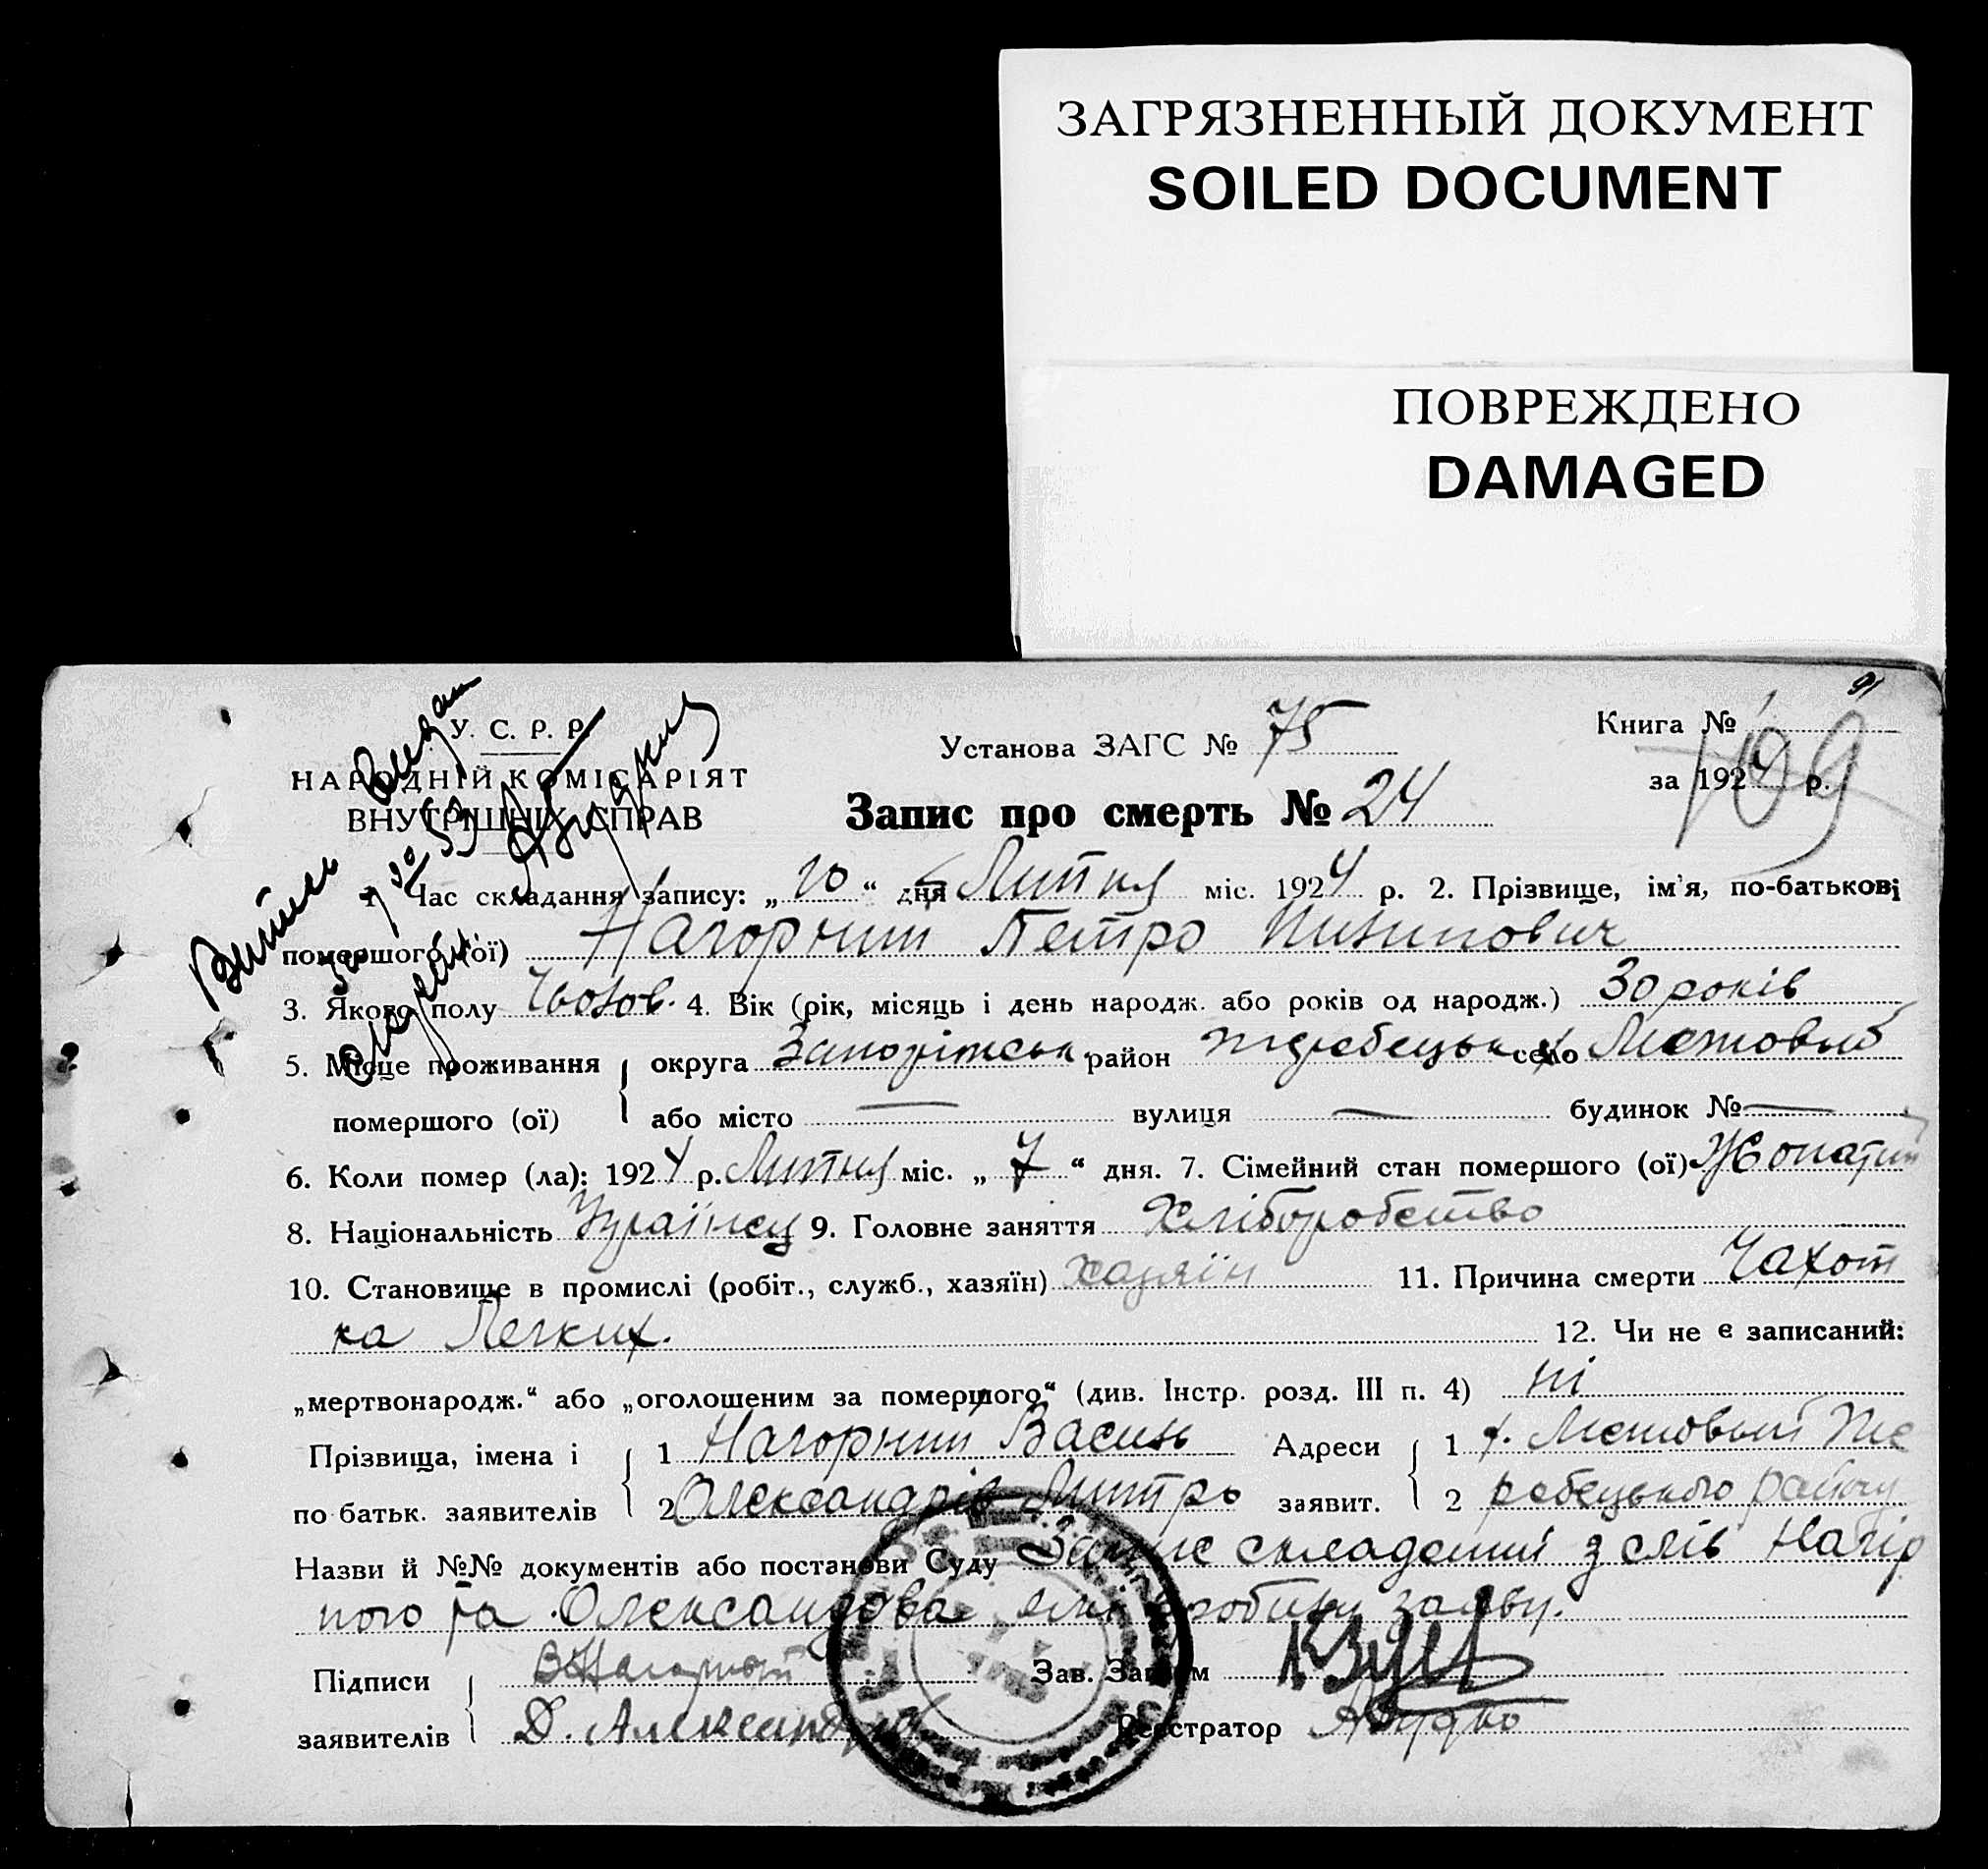 ЗАГРЯЗНЕННЫЙ ДОКУМЕНТ
SOILED DOCUMENT
ПОВРЕЖДЕНО
DAMAGED
91
У. С. Р. Р.
НАРОДНІЙ КОМІСАРІЯТ
ВНУТРІШНІХ СПРАВ
Установа ЗАГС № 75
Книга № 1
за 1924 р.
109
Запис про смерть № 24
1. Час складання запису: „10“ дня Липня міс. 1924 р. 2. Прізвище, ім'я, по-батькові
помершого (ої) Нагорний Петро Пилипович
3. Якого полу Чолов. 4. Вік (рік, місяць і день народж. або років од народж.) 30 років
5. Місце проживання округа район село
помершого (ої) або місто — вулиця — будинок № —
6. Коли помер (ла): 1924 р. Липня міс. „7“ дня. 7. Сімейний стан помершого (ої) Жонатий
8. Національність Українец 9. Головне заняття Хліборобство
10. Становище в промислі (робіт., служб., хазяїн) хазяїн 11. Причина смерти Чахот
ка Легких. 12. Чи не є записаний:
„мертвонародж.“ або „оголошеним за помершого“ (див. Інстр. розд. III п. 4) ні
Прізвища, імена і 1 Нагорний Василь Адреси 1 х.
по батьк. заявителів 2 Олександрів Дмитро заявит. 2 ребецького району
Назви й №№ документів або постанови Суду Запис складений з слів Нагір
ного та Олександрова зробили заяву.
Підписи Зав. Загсом
заявителів Д. Реєстратор